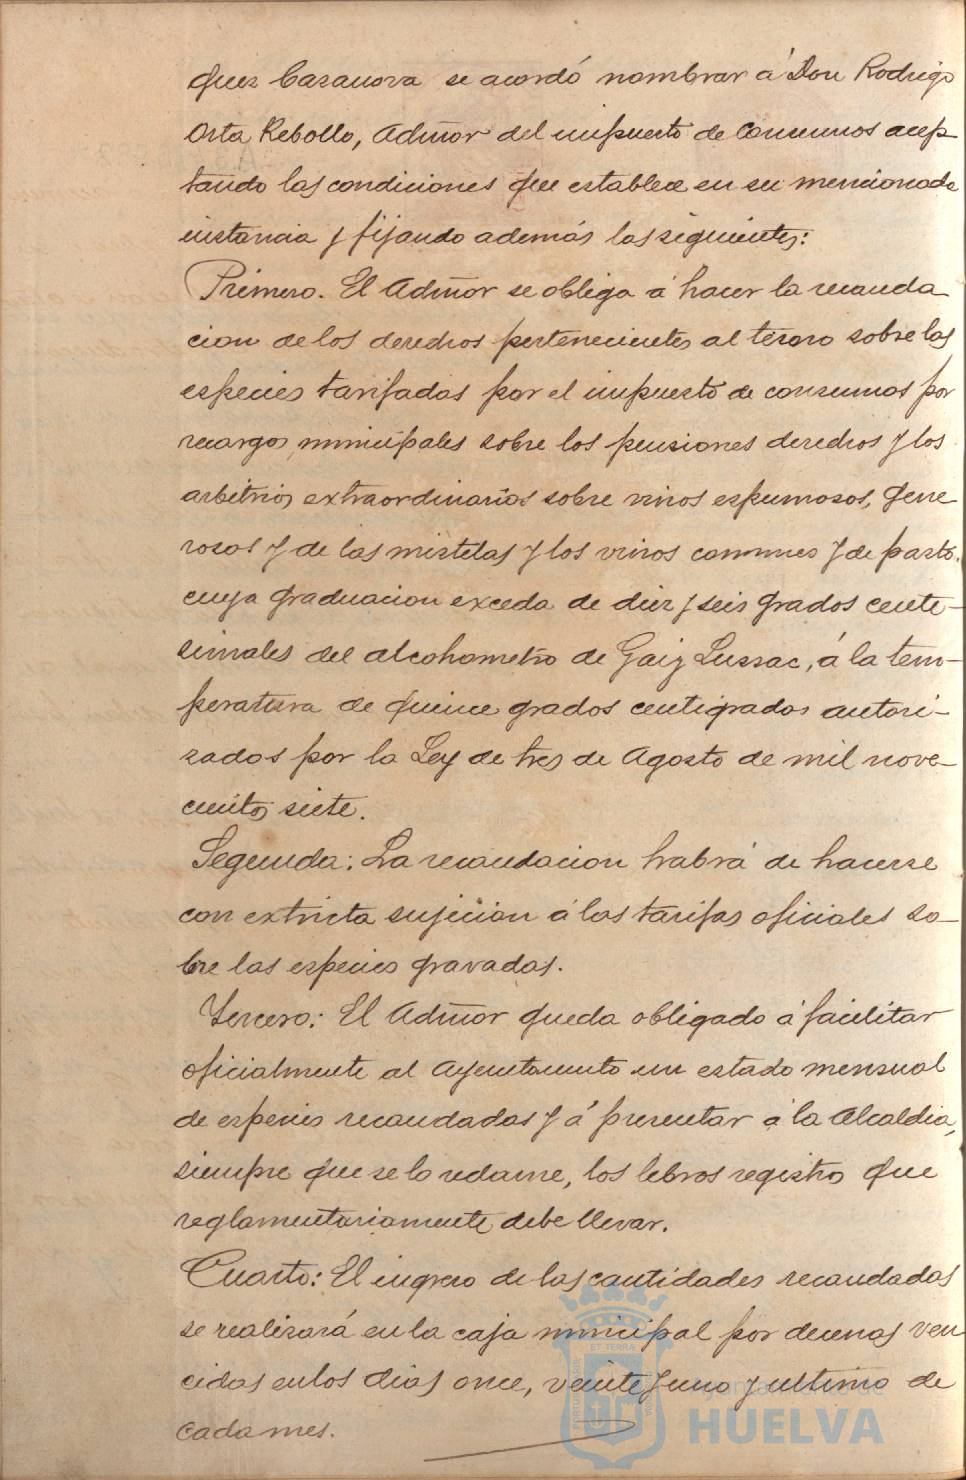 quez Casanova se acordó nombrar á Don Rodrigo
Orta Rebollo, Admor del impuesto de Consumos acep
tando las condiciones que establece en su mencionada
instancia y fijando además las siguientes:
Primero. El Admor se obliga á hacer la recauda
cion de los derechos pertenecientes al tesoro sobre las
especies tarifadas por el impuesto de consumos por
recargos municipales sobre los pensiones derechos y los
arbitrios extraordinarios sobre vinos espumosos, gene
rosos y de las mistelas y los vinos comunes y de pasto,
cuya graduacion exceda de diez y seis grados cente-
simales del alcohometro de Gaiy Lussac, á la tem-
peratura de quince grados centigrados autori-
zados por la Ley de tres de Agosto de mil nove-
cientos siete.
Segunda: La recaudacion habrá de hacerse
con extricta sujecion á las tarifas oficiales so-
bre las especies gravadas.
Tercero: El Admor queda obligado á facilitar
oficialmente al Ayuntamiento un estado mensual
de especies recaudadas y á presentar á la Alcaldia,
siempre que se lo reclame, los lebros registro que
reglamentariamente debe llevar.
Cuarto: El ingreso de las cantidades recaudadas
se realizará en la caja municipal por decenas ven
cidas en los dias once, veinte y uno y ultimo de
cada mes.
Ayuntamiento de
HUELVA